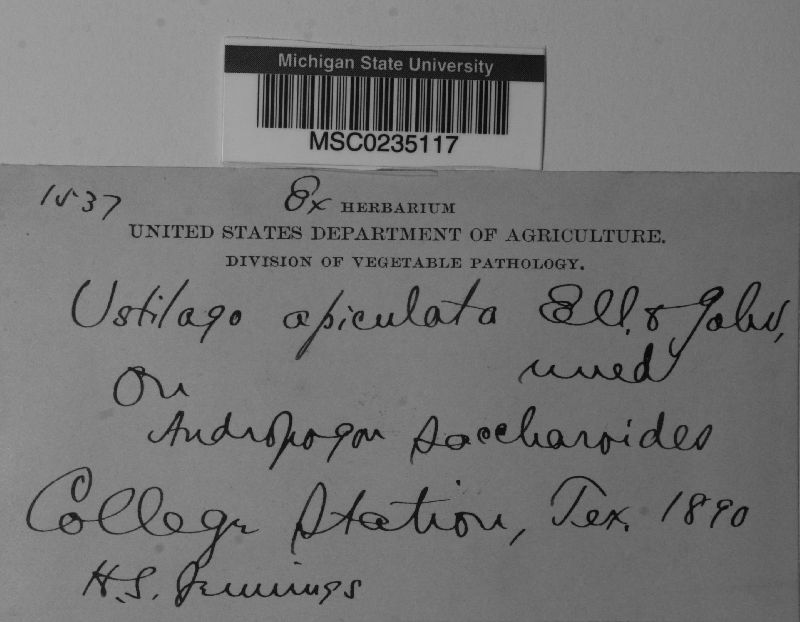 Michigan State University
MSC0235117
1537
Ex HERBARIUM
UNITED STATES DEPARTMENT OF AGRICULTURE.
DIVISION OF VEGETABLE PATHOLOGY.
Ustilago apiculata Ell. &
On
Andropogon saccharoides
College Station, Tex. 1890
H.S. Jennings